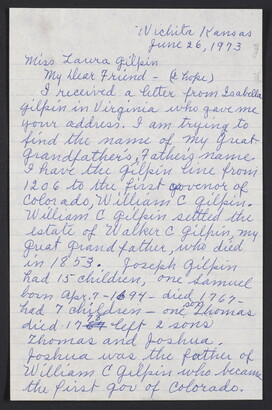 Wichita Kansas
June 26, 1973
Miss Laura Gilpin
My Dear Friend - (I hope)
I received a letter from Isabella
Gilpin in Virginia who gave me
your address. I am trying to
find the name of my Great
Grandfathers, Fathers name
I have the Gilpin line from
1206 to the first govenor of
Colorado, William C Gilpin.
William C Gilpin settled the
estate of Walker C Gilpin, my
Great Grandfather, who died
in 1853. Joseph Gilpin
had 15 children, one Samuel
born Apr. 7-1694 - died 1767 -
had 7 children - one son Thomas
died 17 left 2 sons
Thomas and Joshua.
Joshua was the father of
William C Gilpin who became
the first gov of Colorado.